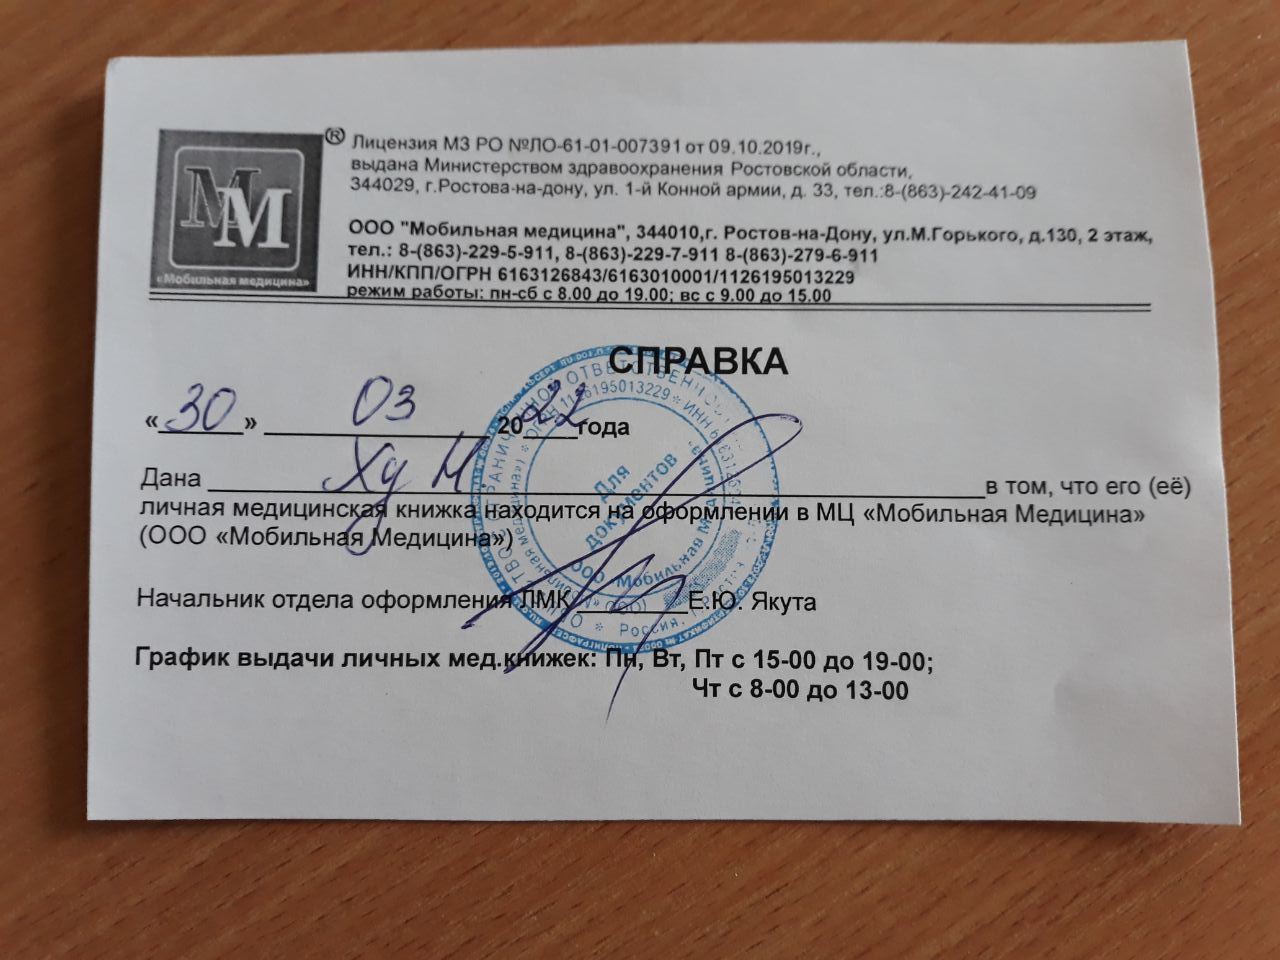 ММ
«Мобильная медицина»
®
Лицензия МЗ РО №ЛО-61-01-007391 от 09.10.2019г.,
выдана Министерством здравоохранения Ростовской области,
344029, г.Ростова-на-дону, ул. 1-й Конной армии, д. 33, тел.:8-(863)-242-41-09
ООО "Мобильная медицина", 344010,г. Ростов-на-Дону, ул.М.Горького, д.130, 2 этаж,
тел.: 8-(863)-229-5-911, 8-(863)-229-7-911 8-(863)-279-6-911
ИНН/КПП/ОГРН 6163126843/6163010001/1126195013229
режим работы: пн-сб с 8.00 до 19.00; вс с 9.00 до 15.00
СПРАВКА
«30» 03 2022 года
Дана Ху Н. в том, что его (её)
личная медицинская книжка находится на оформлении в МЦ «Мобильная Медицина»
(ООО «Мобильная Медицина»)
Начальник отдела оформления ЛМК Е.Ю. Якута
График выдачи личных мед.книжек: Пн, Вт, Пт с 15-00 до 19-00;
Чт с 8-00 до 13-00
Для
документов